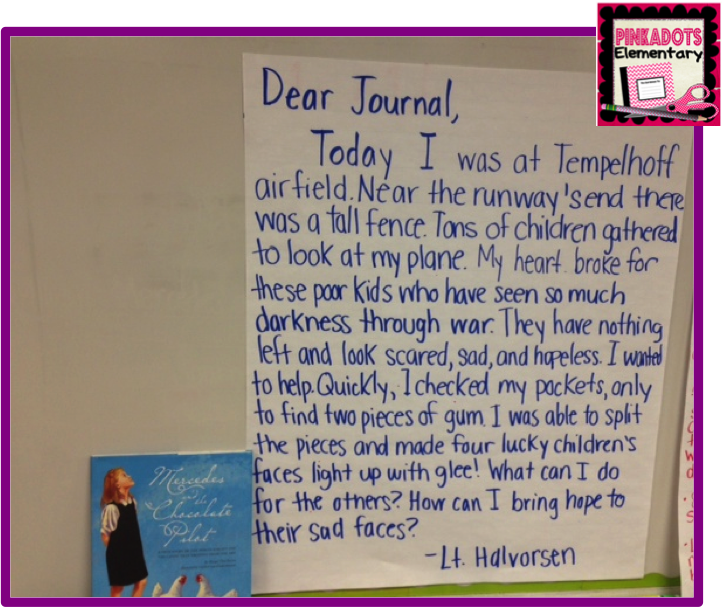 PINKADOTS
Elementary
Dear Journal,
Today I was at Tempelhoff
airfield. Near the runway'send there
was a tall fence. Tons of children gathered
to look at my plane. My heart broke for
these poor kids who have seen so much
darkness through war. They have nothing
left and look scared, sad, and hopeless. I wanted
to help. Quickly, I checked my pockets, only
to find two pieces of gum. I was able to split
the pieces and made four lucky children's
faces light up with glee! What can I do
for the others? How can I bring hope to
their sad faces?
-Lt. Halvorsen
Mercedes
and the
Chocolate
Pilot